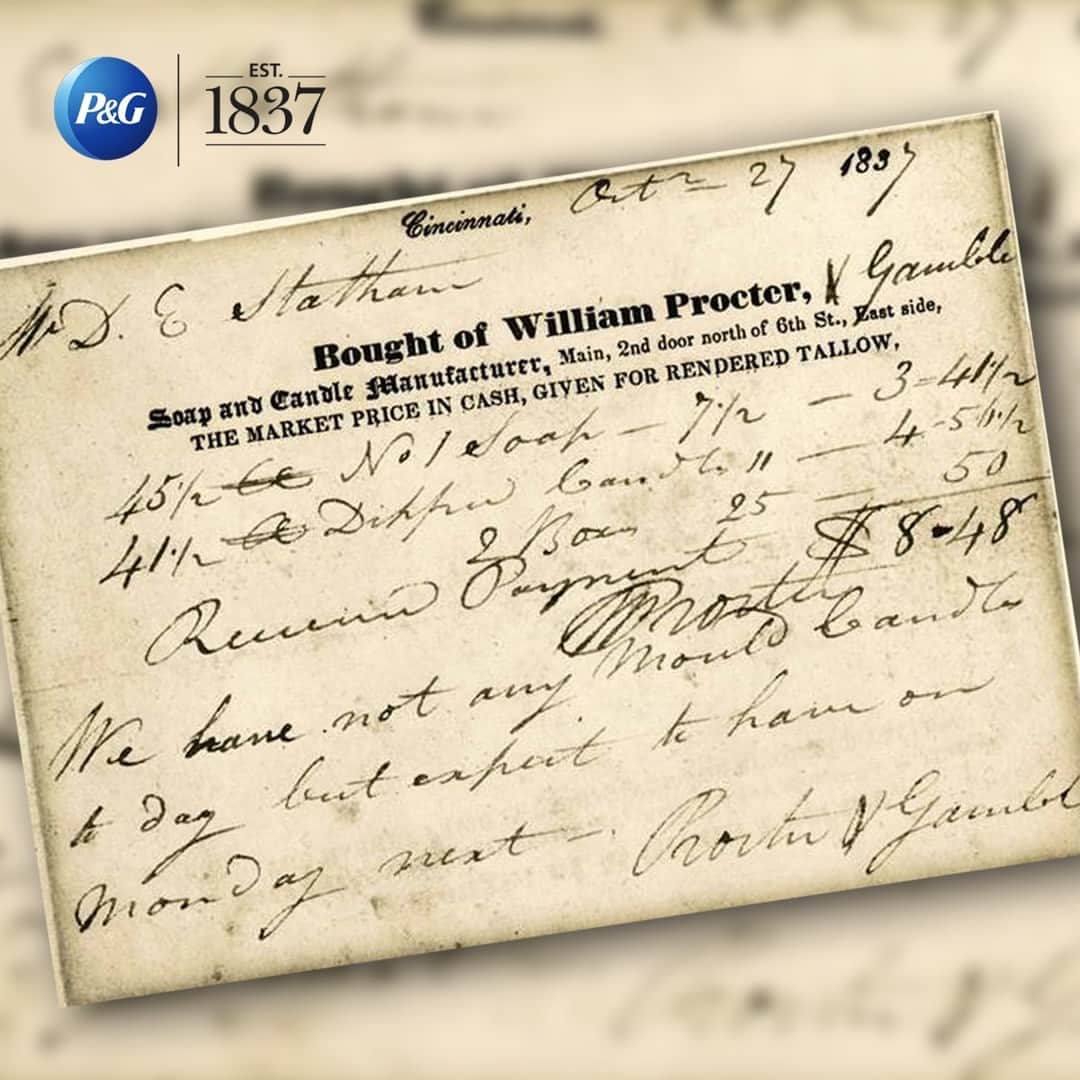 P&G
EST.
1837
Cincinnati, Octr 27 1837
Mr D. E Statham
Bought of William Procter, & Gamble
Soap and Candle Manufacturer, Main, 2nd door north of 6th St., East side,
THE MARKET PRICE IN CASH, GIVEN FOR RENDERED TALLOW,
45 1/2 No 1 Soap — 7 1/2 — 3=41 1/2
41 1/2 Dipped Candles 11 — 4-56 1/2
2 Boxes 25 — 50
Received Payment $8-48
W Procter
We have not any Mould Candles
to day but expect to have on
Monday next — Procter & Gamble